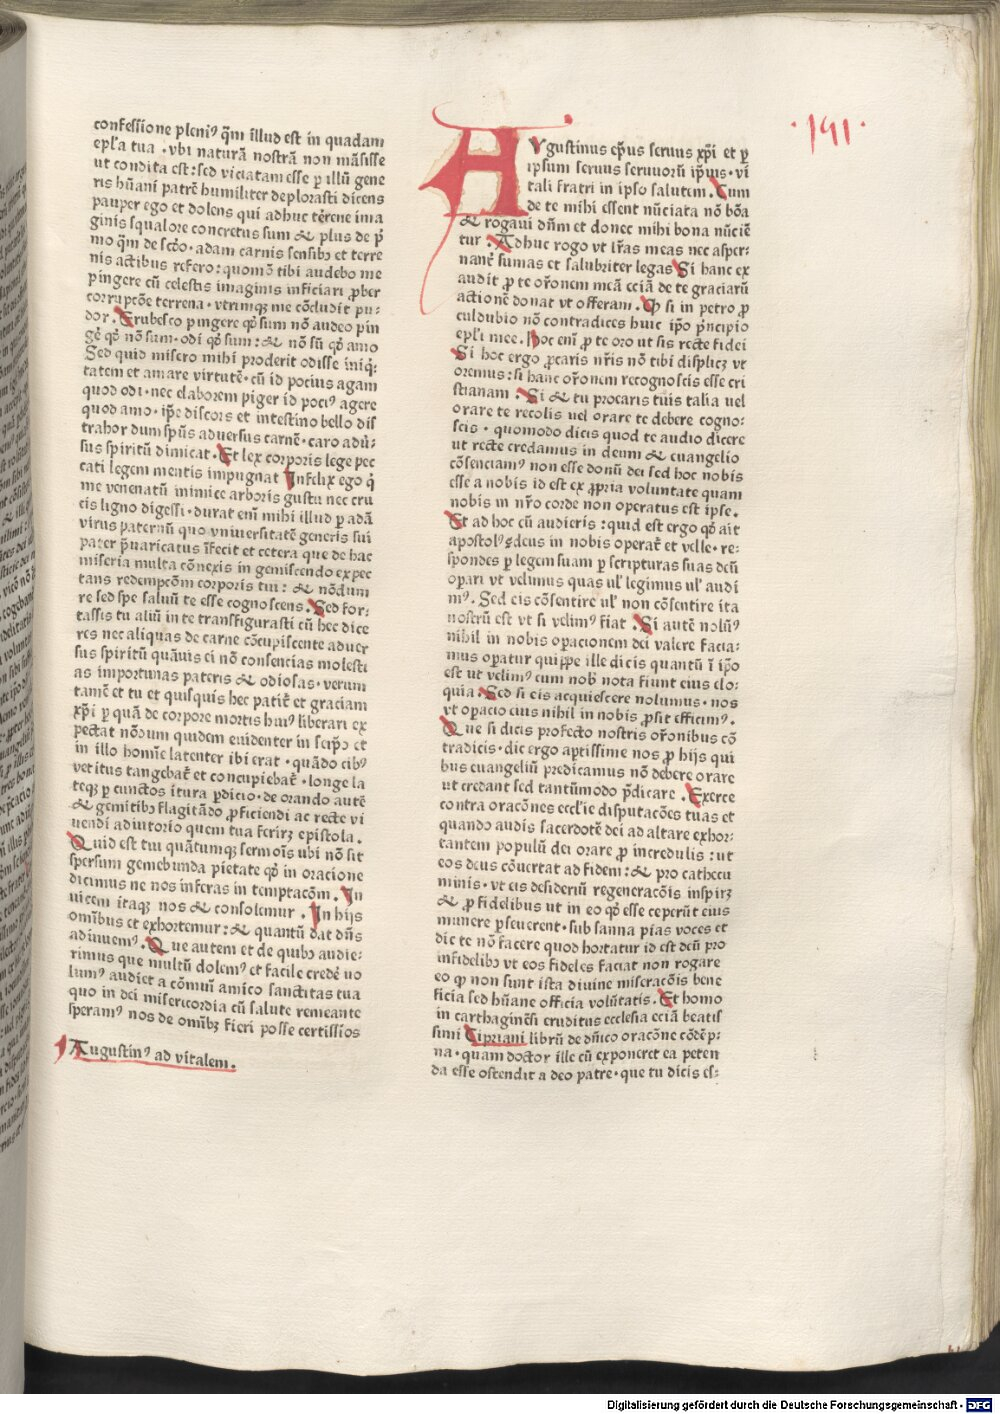 confessione pleniꝰ q̃m illud est in quadam
epl'a tua . vbi naturã nostrã non mãsisse
ut condita est : sed viciatam esse ꝑ illũ gene
ris hũani patrẽ humiliter deplorasti dicens
pauper ego et dolens qui adhuc terrene ima
ginis squalore concretus sum & plus de p̃
mo q̃m de scd̃o . adam carnis sensibꝫ et terre
nis actibus refero : quomõ tibi audebo me
pingere cũ celestis imaginis inficiari ꝓber
corrupcõe terrena . vtrimqꝫ me cõcludit pu-
dor . Erubesco pingere qď sum nõ audeo pin
gẽ qď nõ sum . odi qď sum : & nõ sũ qď amo
Sed quid misero mihi proderit odisse iniq̃-
tatem et amare virtutẽ . cũ id pocius agam
quod odi . nec elaborem piger id pociꝰ agere
quod amo . ip̃e discors et intestino bello dis
trahor dum sp̃us aduersus carnẽ . caro adũ-
sus spiritũ dimicat . Et lex corporis lege pec
cati legem mentis impugnat Infelix ego q̃
me venenatũ inimice arboris gustu nec cru
cis ligno digessi . durat eni̇̃ mihi illud ꝑ adã
virus paternũ quo vniuersitatẽ generis sui
pater p̃uaricatus ĩfecit et cetera que de hac
miseria multa cõnexis in gemiscendo expec
tans redempcõm corporis tui : & nõdum
re sed spe saluũ te esse cognoscens . Sed for-
tassis tu aliũ in te transfigurasti cũ hec dice
res nec aliquas de carne cõcupiscente aduer
sus spiritũ quãuis ei nõ consencias molesti
as importunas pateris & odiosas . verum
tamẽ et tu et quisquis hec patit̃ et graciam
xp̃i ꝑ quã de corpore mortis huiꝰ liberari ex
pectat nõdum quidem euidenter in seip̃o et
in illo homĩe latenter ibi erat . quãdo cibꝰ
vetitus tangebat̃ et concupiebat̃ . longe la
teqꝫ ꝑ cunctos itura ꝑdicio . de orando autẽ
& gemitibꝫ flagitãdo ꝓficiendi ac recte vi
uendi adiutorio quem tua ferit᷑ epistola .
Quid est tui quãtumqꝫ sermoĩs ubi nõ sit
spersum gemebunda pietate qď in oracione
dicimus ne nos inferas in temptacõm . In
uicem itaqꝫ nos & consolemur . In hijs
omĩbus et exhortemur : & quantũ dat dñs
adiuuemꝰ . Que autem et de quibꝫ audie-
rimus que multũ dolemꝰ et facile credẽ uo
lumꝰ audiet a cõmũi amico sanctitas tua
quo in dei misericordia cũ salute remeante
speramꝰ nos de omĩbꝫ fieri posse certissios
Augustinꝰ ad vitalem .
. 191 .
AVgustinus ep̃us seruus xp̃i et ꝑ
ipsum seruus seruuorũ ip̃ius . vi
tali fratri in ipso salutem . Cum
de te mihi essent nũciata nõ bõa
& rogaui dñm et donec mihi bona nũciẽ
tur . Adhuc rogo vt lr̃as meas nec asper-
nant᷑ sumas et salubriter legas Si hanc ex
audit ꝓ te or̃onem meã eciã de te graciarũ
actionẽ donat vt offeram . Qď si in petro ꝓ
culdubio nõ contradices huic ip̃o p̃ncipio
epl'i mee . Hoc eni̇̃ ꝓ te oro ut sis recte fidei
Si hoc ergo ꝓcaris nr̃is nõ tibi displicꝫ vt
oremus : si hanc or̃onem recognoscis esse cri
stianam . Si & tu procaris tuis talia uel
orare te recolis uel orare te debere cogno-
scis . quomodo dicis quod te audio dicere
ut recte credamus in deum & euangelio
cõsenciamꝰ non esse donũ dei sed hoc nobis
esse a nobis id est ex ꝓpria voluntate quam
nobis in nr̃o corde non operatus est ipse .
Et ad hoc cũ audieris : quid est ergo qď ait
apostolꝰ deus in nobis operat̃ et velle . re-
spondes ꝑ legem suam ꝑ scripturas suas deũ
oꝑari vt velimus quas ul' legimus ul' audi
mꝰ . Sed eis cõsentire ul' non cõsentire ita
nostrũ est vt si velimꝰ fiat . Si autẽ nolũꝰ
nihil in nobis oꝑacionem dei valere facia-
mus oꝑatur quippe ille dicis quantũ ĩ ip̃o
est ut velimꝰ cum nobꝰ nota fiunt eius elo-
quia . Sed si eis acquiescere nolumus . nos
vt oꝑacio eius nihil in nobis ꝓsit efficimꝰ .
Que si dicis profecto nostris or̃onibus cõ
tradicis . dic ergo aꝑtissime nos ꝓ hijs qui
bus euangeliũ predicamus nõ debere orare
ut credant sed tantũmodo p̃dicare . Exerce
contra oracões eccl'ie disputacões tuas et
quando audis sacerdotẽ dei ad altare exhor-
tantem populũ dei orare ꝓ incredulis : ut
eos deus cõuertat ad fidem : & pro cathecu
minis . vt eis desideriũ regeneracõis inspirꝫ
& ꝓ fidelibus ut in eo qď esse ceperũt eius
munere ꝑseuerent . sub sanna pias voces et
dic te nõ facere quod hortatur id est deũ pro
infidelibꝫ vt eos fideles faciat non rogare
eo qď non sunt ista diuine miseracõis bene
ficia sed hũane officia volũtatis . Et homo
in carthaginẽsi eruditus ecclesia eciã beatis
simi Cipriani librũ de dñico oracõne cõdẽp-
na . quam doctor ille cũ exponeret ea peten
da esse ostendit a deo patre . que tu dicis es-
Digitalisierung gefördert durch die Deutsche Forschungsgemeinschaft - DFG